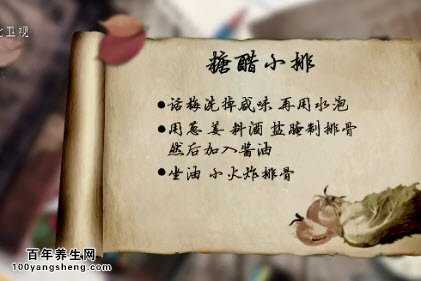 卫视
糖醋小排
●话梅洗掉咸味 再用水泡
●用葱 姜 料酒 盐腌制排骨
然后加入酱油
●坐油 小火炸排骨
百年养生网
100yangsheng.com